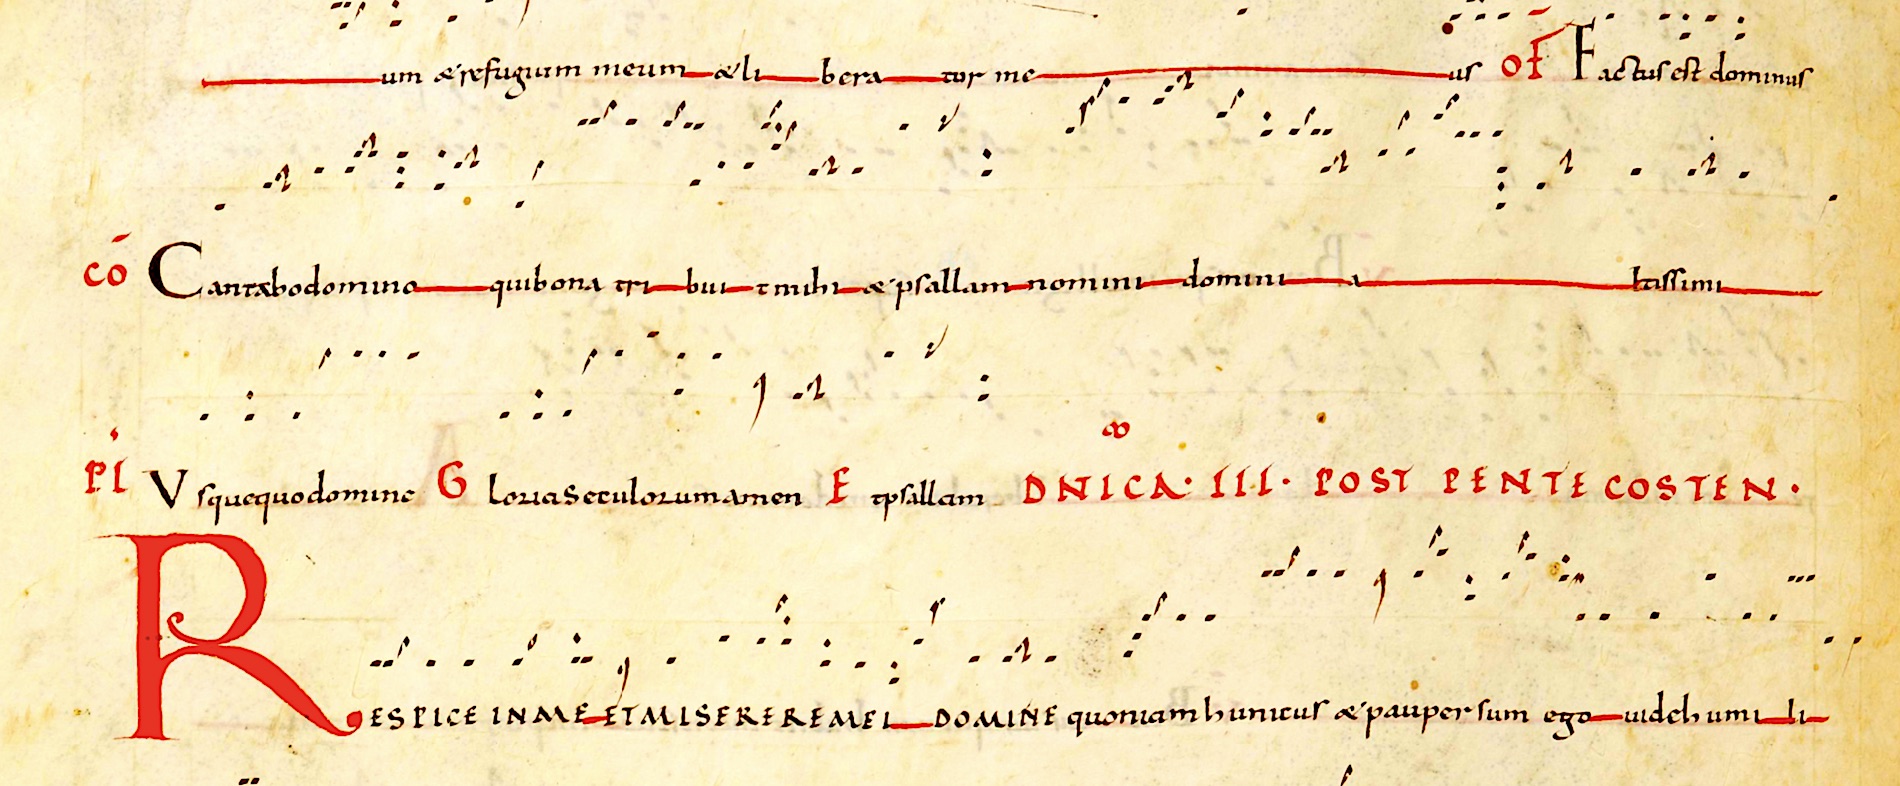 um & refugium meum & li bera tor me us OF Factus est dominus
CO Cantabo domino qui bona tri bui t mihi & psallam nomini domini a ltissimi
PS Vsquequo domine G loria seculorum amen E tpsallam DNICA · III · POST PENTECOSTEN ·
RESPICE IN ME ET MISERERE MEI DOMINE quoniam hunicus & pauper sum ego uide humi li